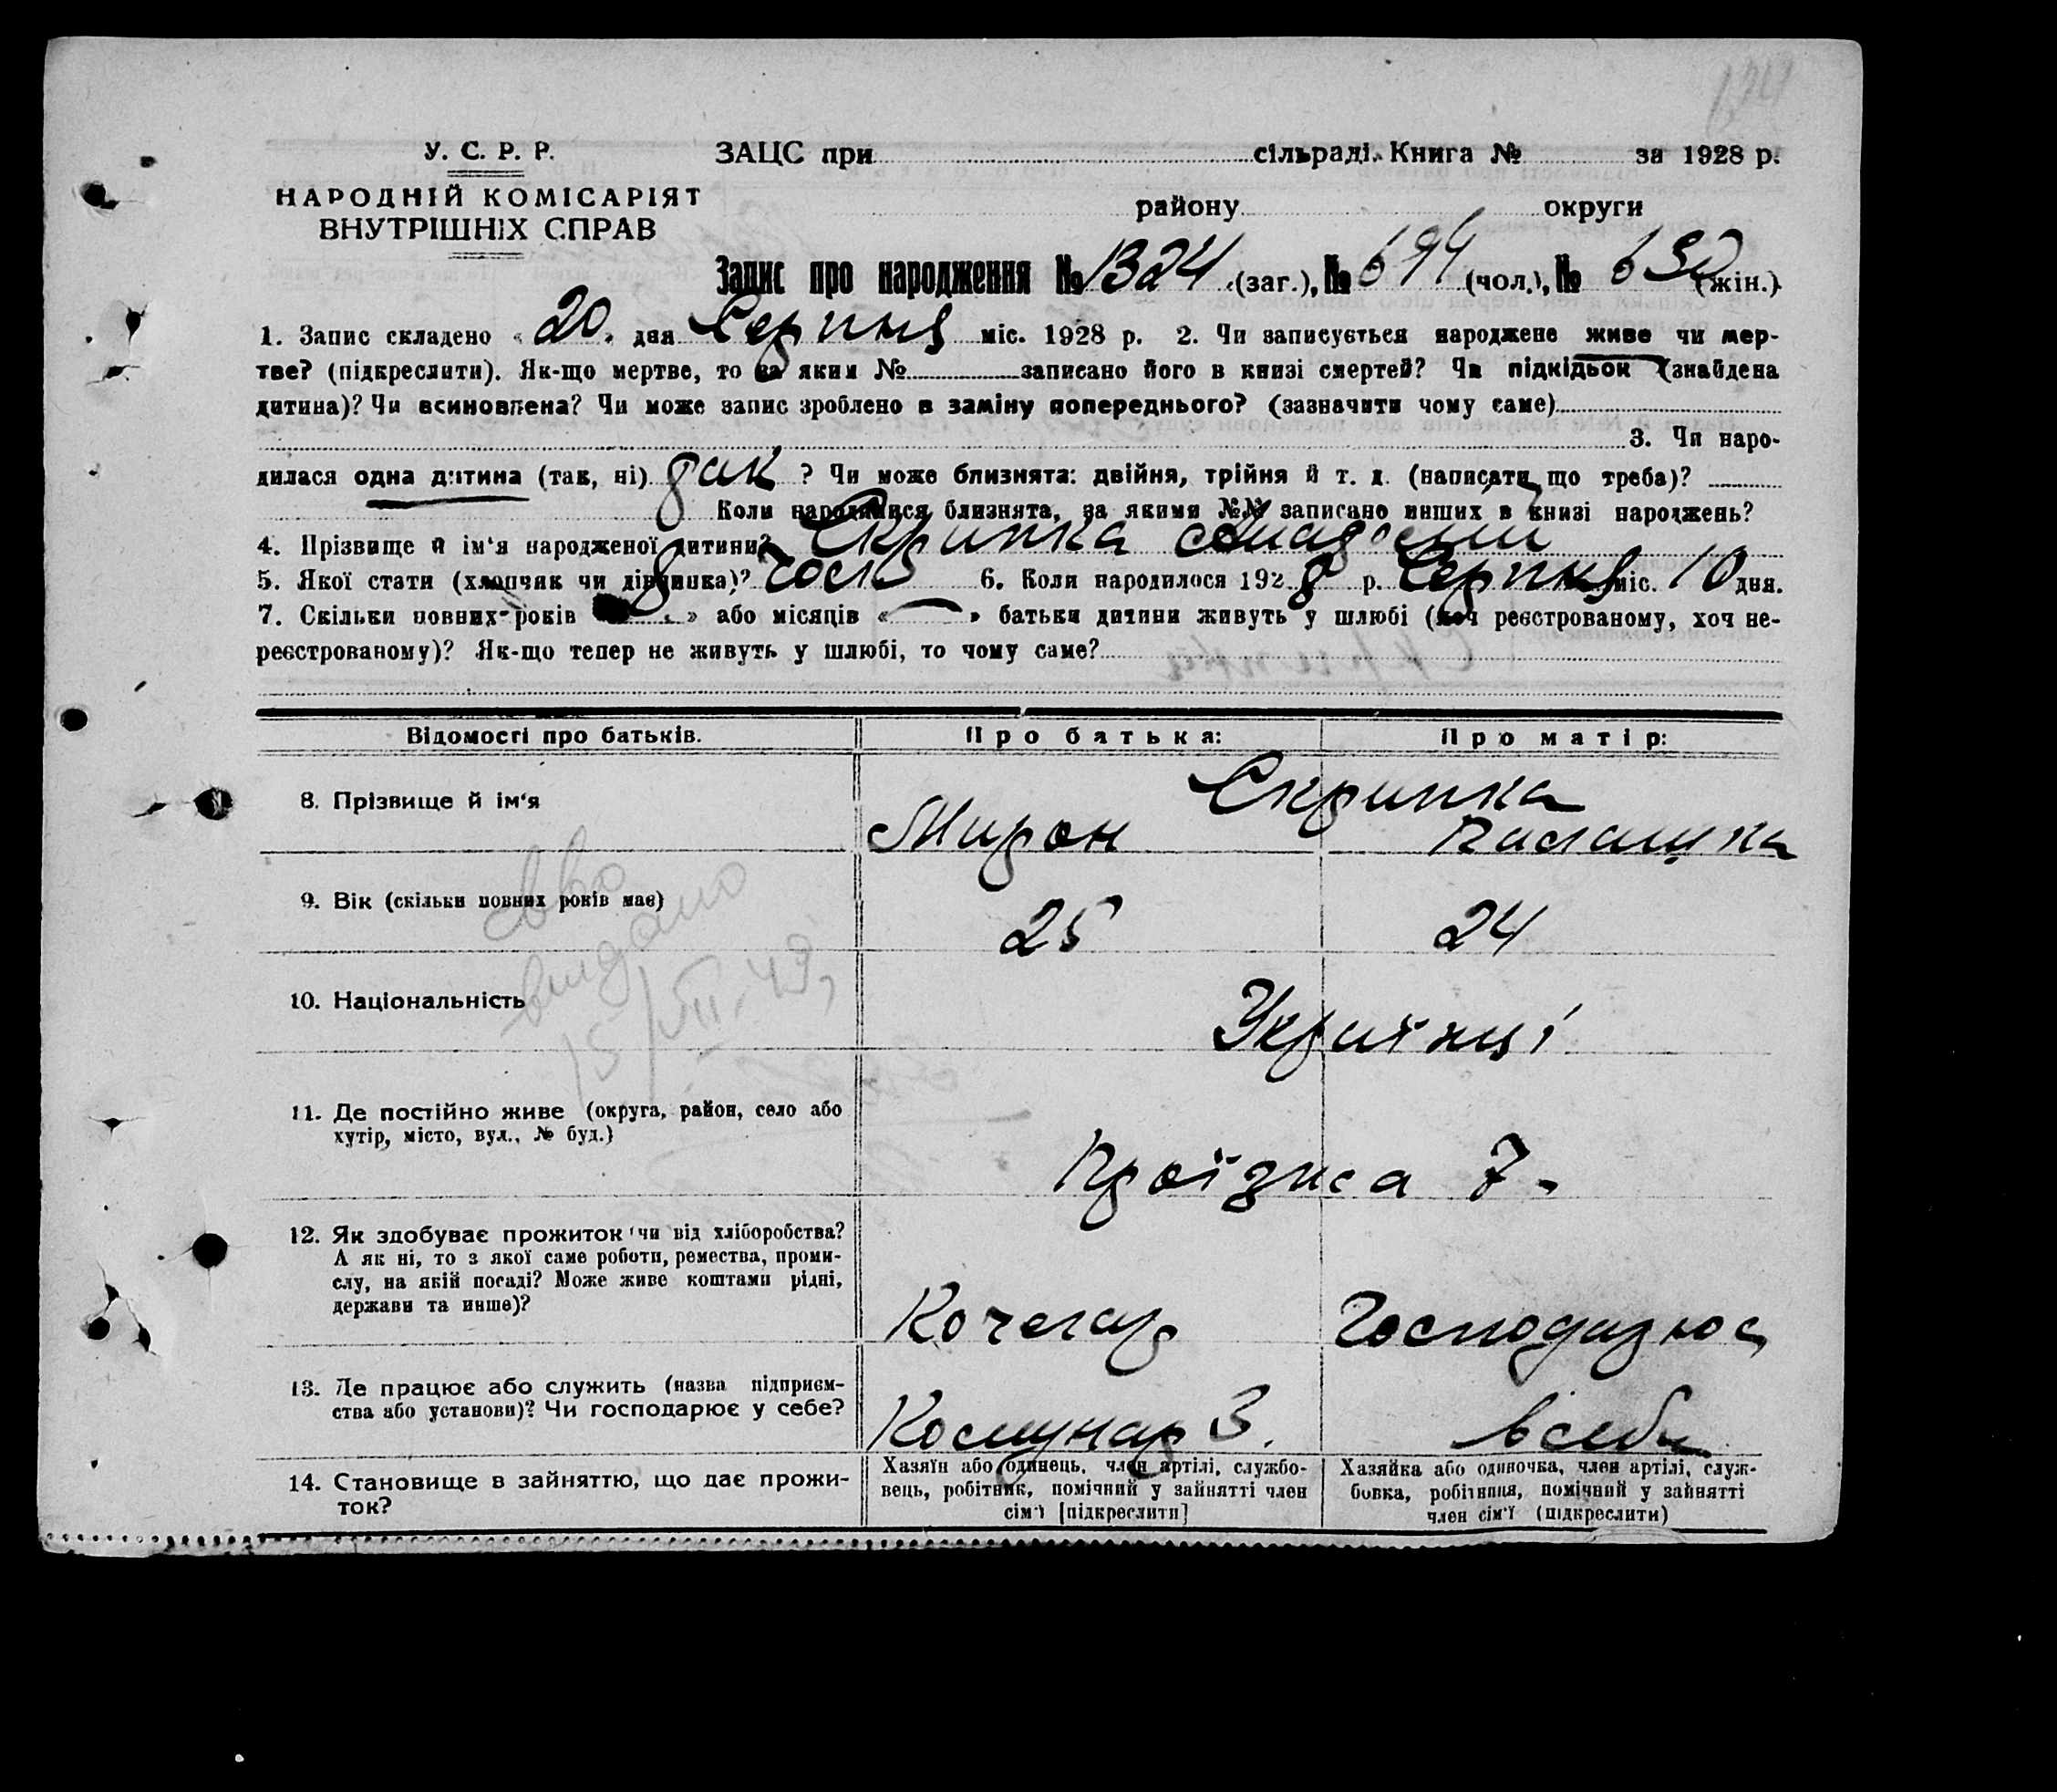 У. С. Р. Р.
НАРОДНІЙ КОМІСАРІЯТ
ВНУТРІШНІХ СПРАВ
ЗАЦС при сільраді. Книга № за 1928 р.
району округи
Запис про народження № 1324 (заг.), № 694 (чол.), № 630 (жін.)
1. Запис складено « 20 » дня Серпня міс. 1928 р. 2. Чи записується народжене живе чи мер-
тве? (підкреслити). Як-що мертве, то за яким № записано його в книзі смертей? Чи підкідьок (знайдена
дитина)? Чи всиновлена? Чи може запис зроблено в заміну попереднього? (зазначити чому саме)
3. Чи наро-
дилася одна дитина (так, ні) так ? Чи може близнята: двійня, трійня й т. д. (написати що треба)?
Коли народилися близнята, за якими №№ записано инших в книзі народжень?
4. Прізвище й ім'я народженої дитини? Скрипка
5. Якої стати (хлопчик чи дівчинка)? 6. Коли народилося 1928 р. Серпня міс. 10 дня.
7. Скільки повних років « » або місяців « — » батьки дитини живуть у шлюбі (хоч реєстрованому, хоч не-
реєстрованому)? Як-що тепер не живуть у шлюбі, то чому саме?
Відомості про батьків. Про батька: Про матір:
8. Прізвище й ім'я Скрипка
Мирон Палашка
9. Вік (скільки повних років має) 25 24
видано
15/VII. 49,
10. Національність Українці
11. Де постійно живе (округа, район, село або
хутір, місто, вул., № буд.)
Проїзна 7.
12. Як здобуває прожиток чи від хліборобства?
А як ні, то з якої саме роботи, ремества, проми-
слу, на якій посаді? Може живе коштами рідні,
держави та инше)?
Кочегар
13. Де працює або служить (назва підприєм-
ства або установи)? Чи господарює у себе?
Комунар З. в себе
14. Становище в зайняттю, що дає прожи-
ток?
Хазяїн або одинець, член артілі, службо-
вець, робітник, помічний у зайнятті член
сім'ї [підкреслити]
Хазяйка або одиночка, член артілі, служ-
бовка, робітниця, помічний у зайнятті
член сім'ї (підкреслити)